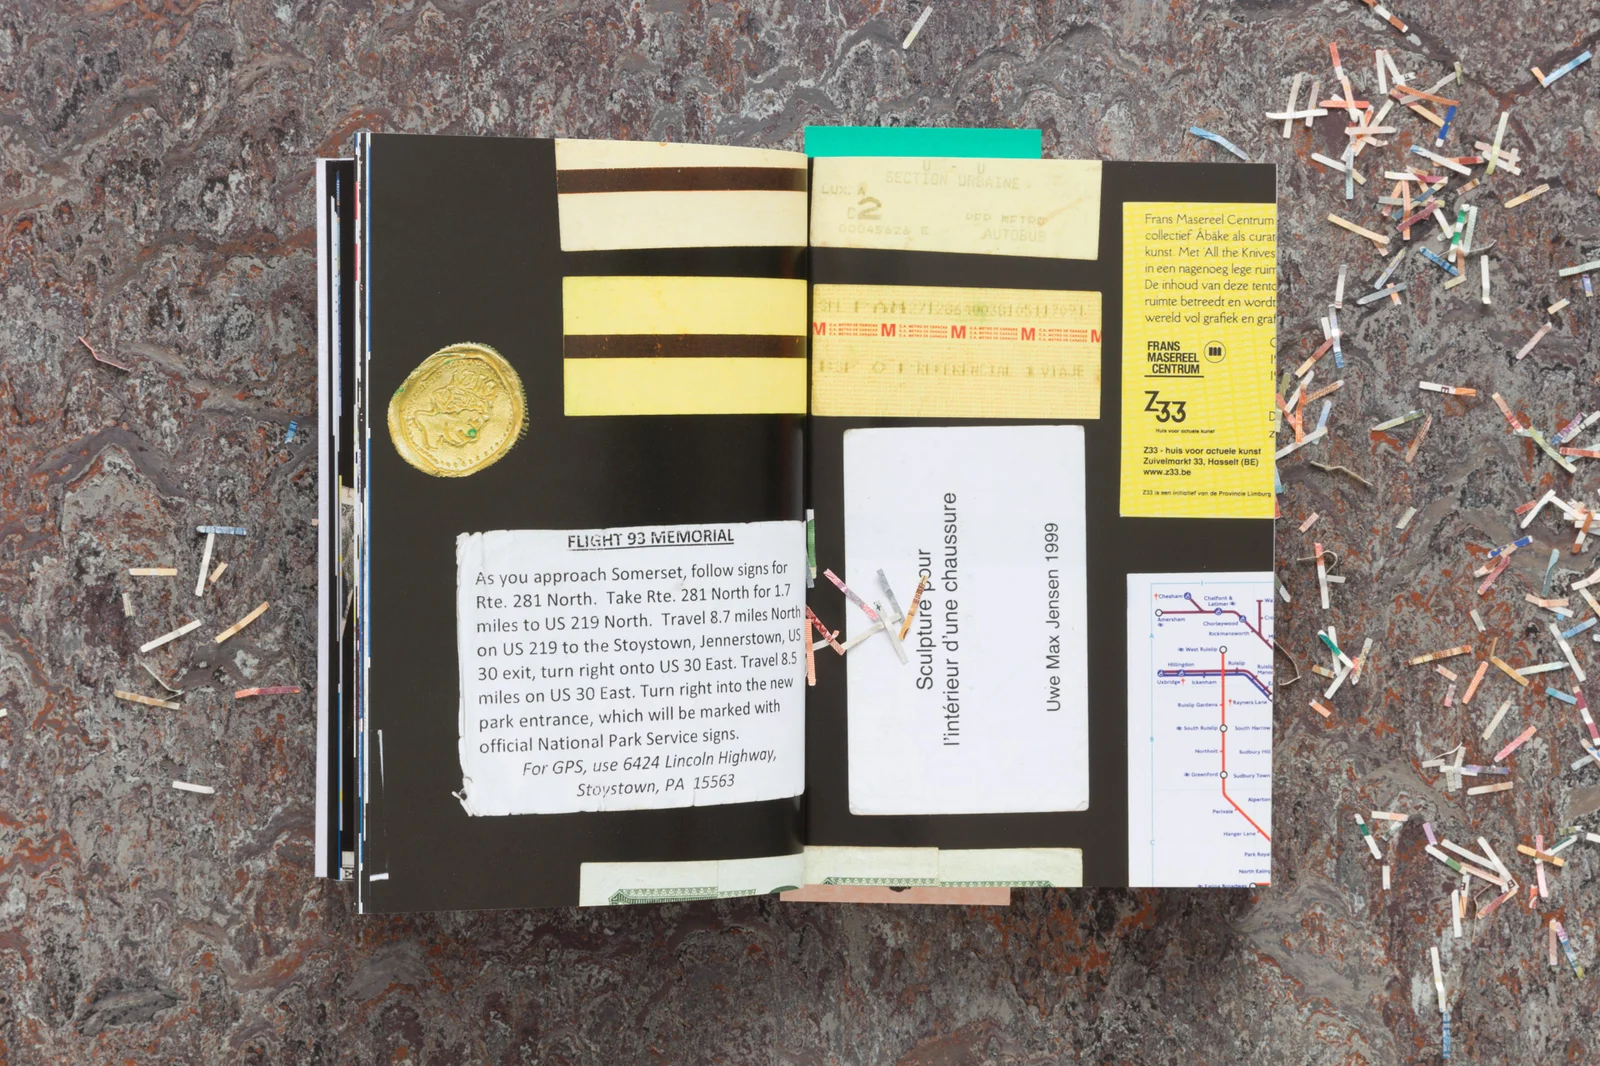 FLIGHT 93 MEMORIAL
As you approach Somerset, follow signs for
Rte. 281 North. Take Rte. 281 North for 1.7
miles to US 219 North. Travel 8.7 miles North
on US 219 to the Stoystown, Jennerstown, US
30 exit, turn right onto US 30 East. Travel 8.5
miles on US 30 East. Turn right into the new
park entrance, which will be marked with
official National Park Service signs.
For GPS, use 6424 Lincoln Highway,
Stoystown, PA 15563
U - U
SECTION URBAINE
LUX. A
2
00045626 E
RER METRO
AUTOBUS
M C.A. METRO DE CARACAS M C.A. METRO DE CARACAS M C.A. METRO DE CARACAS M C.A. METRO DE CARACAS M
VIAJE
Sculpture pour
l'intérieur d'une chaussure
Uwe Max Jensen 1999
Frans Masereel Centrum
collectief Åbäke als curat
kunst. Met 'All the Knives
in een nagenoeg lege ruim
De inhoud van deze tento
ruimte betreedt en wordt
wereld vol grafiek en graf
FRANS
MASEREEL
CENTRUM
Z33
Huis voor actuele kunst
Z33 - huis voor actuele kunst
Zuivelmarkt 33, Hasselt (BE)
www.z33.be
Z33 is een initiatief van de Provincie Limburg
Chesham
Chalfont &
Latimer
Amersham
Chorleywood
Rickmansworth
West Ruislip
Hillingdon
Ruislip
Uxbridge
Ickenham
Ruislip Gardens
Rayners Lane
South Ruislip
South Harrow
Northolt
Sudbury Hill
Greenford
Sudbury Town
Perivale
Alperton
Hanger Lane
Park Royal
North Ealing
Ealing Broadway